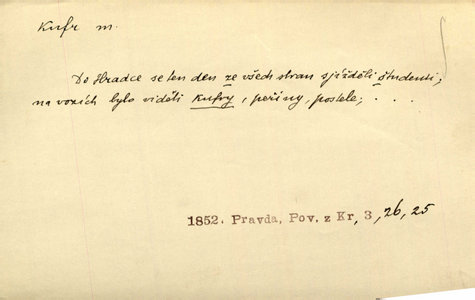 Kufr m.
Do Hradce se ten den ze všech stran sjížděli študenti;
na vozích bylo viděti kufry, peřiny, postele; . . .
1852. Pravda, Pov. z Kr, 3, 26, 25